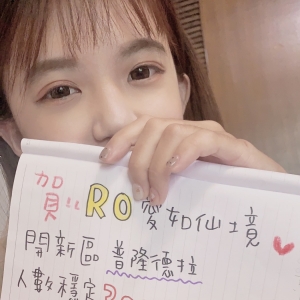 賀!! RO愛如仙境
開新區 普隆德拉
人數穩定